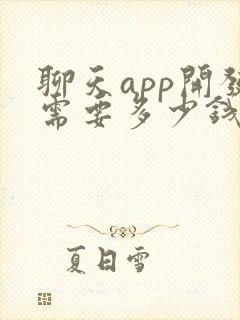 聊天app開發
需要多少錢
夏日雪